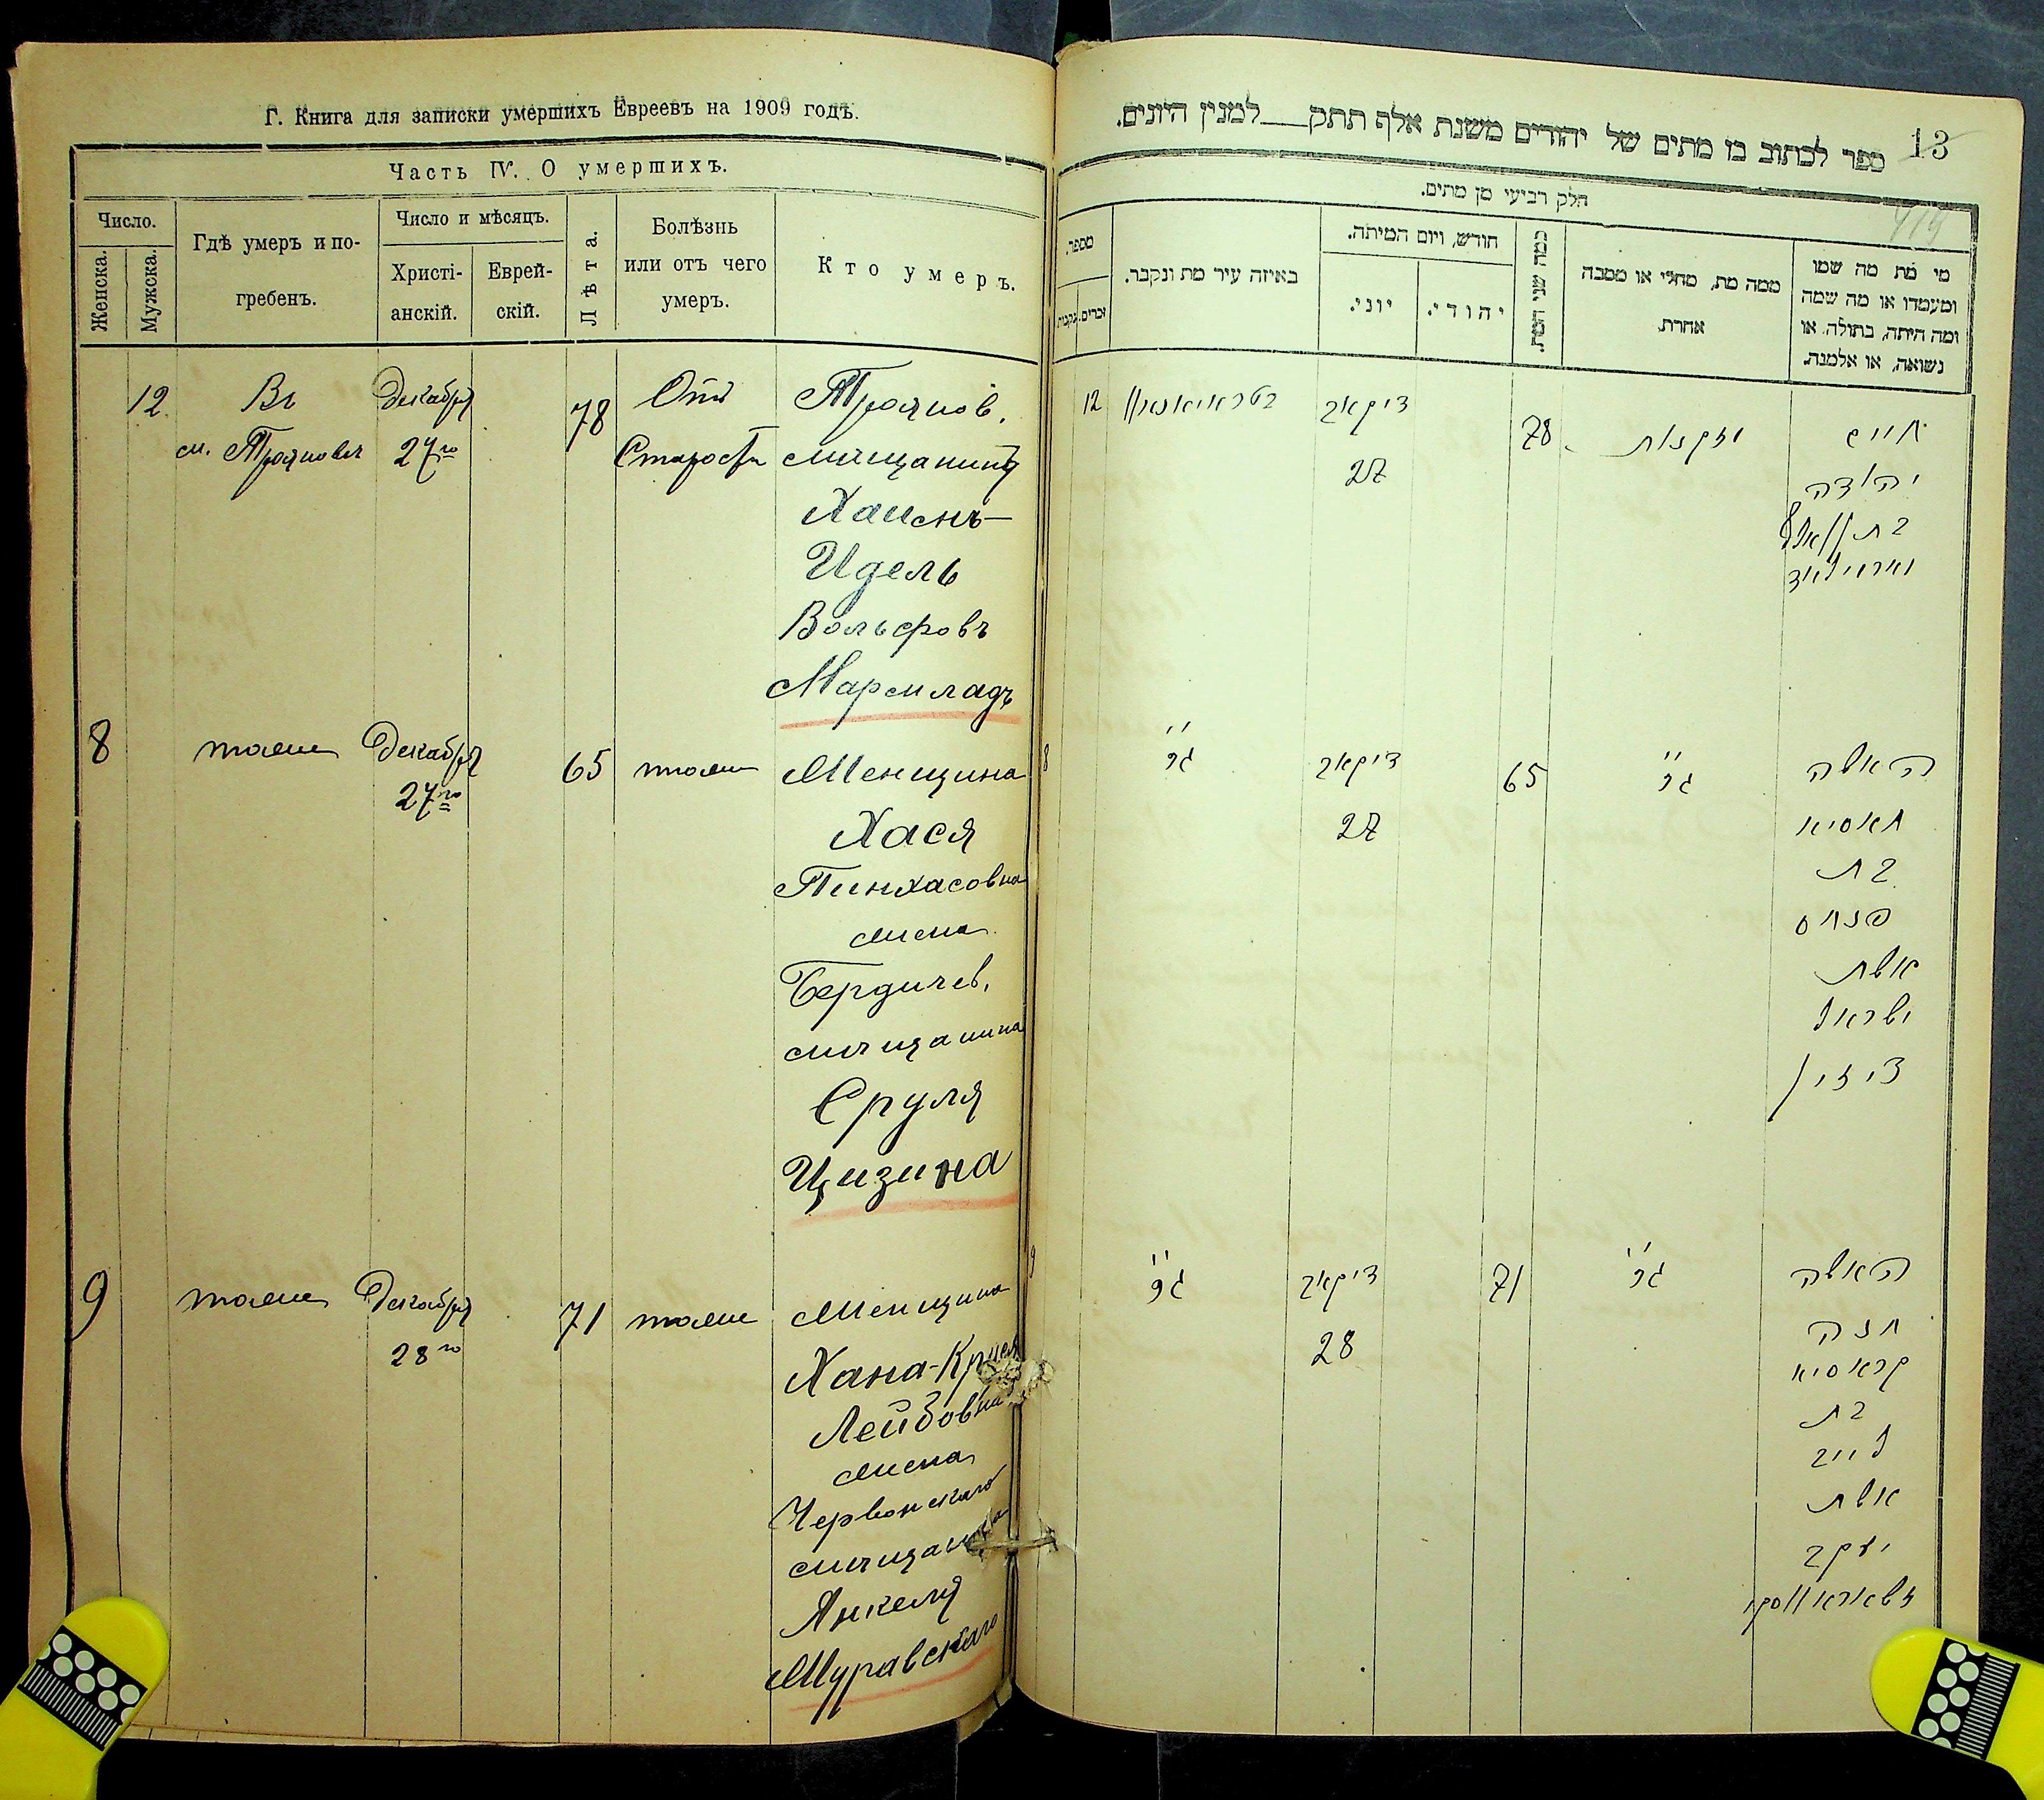 Г. Книга для записки умершихъ Евреевъ на 1909 годъ.
Часть IV. О умершихъ.
Число.
Женска.
Мужска.
Гдѣ умеръ и по-
гребенъ.
Число и мѣсяцъ.
Христі-
анскій.
Еврей-
скій.
Лѣта.
Болѣзнь
или отъ чего
умеръ.
Кто умеръ.
12
Въ
м. Трояновѣ
Декабря
27го
78
Отъ
Старости
Троянов.
мѣщанинъ
Хаимъ-
Идель
Вольфовъ
Мармладъ
8
тоже
Декабря
27го
65
тоже
Женщина
Хася
Пинхасовна
жена
Бердичев.
мѣщанина
Сруля
Цизина
9
тоже
Декабря
28го
71
тоже
Женщина
Хана-
Лейбовна
жена
мѣщанина
Янкеля
13
ספר לכתוב בו מתים של יהודים משנת אלף תתק למנין היונים.
חלק רביעי מן מתים.
מספר.
זכרים.
נקבות
באיזה עיר מת ונקבר.
חודש, ויום המיתה.
יוני.
יהודי.
כמה שני המת.
ממה מת, מחלי או מסבה
אחרת.
מי מת מה שמו
ומעמדו או מה שמה
ומה היתה, בתולה, או
נשואה, או אלמנה.
12
דיקאב
27
78
מזקנות
חיים
יהודה
8
דיקאב
27
65
האשה
חאסיא
בת
פנחס
אשת
ישראל
ציזין
9
דיקאב
28
71
האשה
חנה
קראסיא
בת
לייב
אשת
יעקב